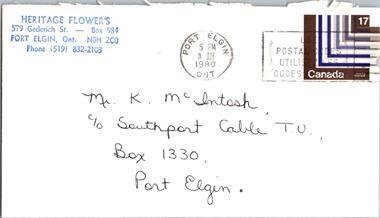 HERITAGE FLOWER'S
579 Goderich St. — Box 984
PORT ELGIN, Ont. N0H 2C0
Phone (519) 832-2103
PORT ELGIN
5 PM
3 III
1980
ONT
POSTAL CODES
UTILISE
CODES
17
Canada
Mr. K. McIntosh,
c/o Southport Cable T.V.,
Box 1330,
Port Elgin.